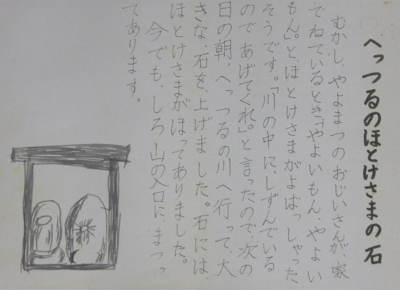 へっつるのほとけさまの石
むかし、やよまつのおじいさんが、家
でねているとき、「やよいもん、やよい
もん。」と、ほとけさまがよばっしゃった
そうです。「川の中に、しずんでいる
のであげてくれ。」と言ったので、次の
日の朝、へっつるの川へ行って、大
きな、石を、上げました。石には、
ほとけさまがほってありました。
今でも、しろ山の入口に、まつっ
てあります。